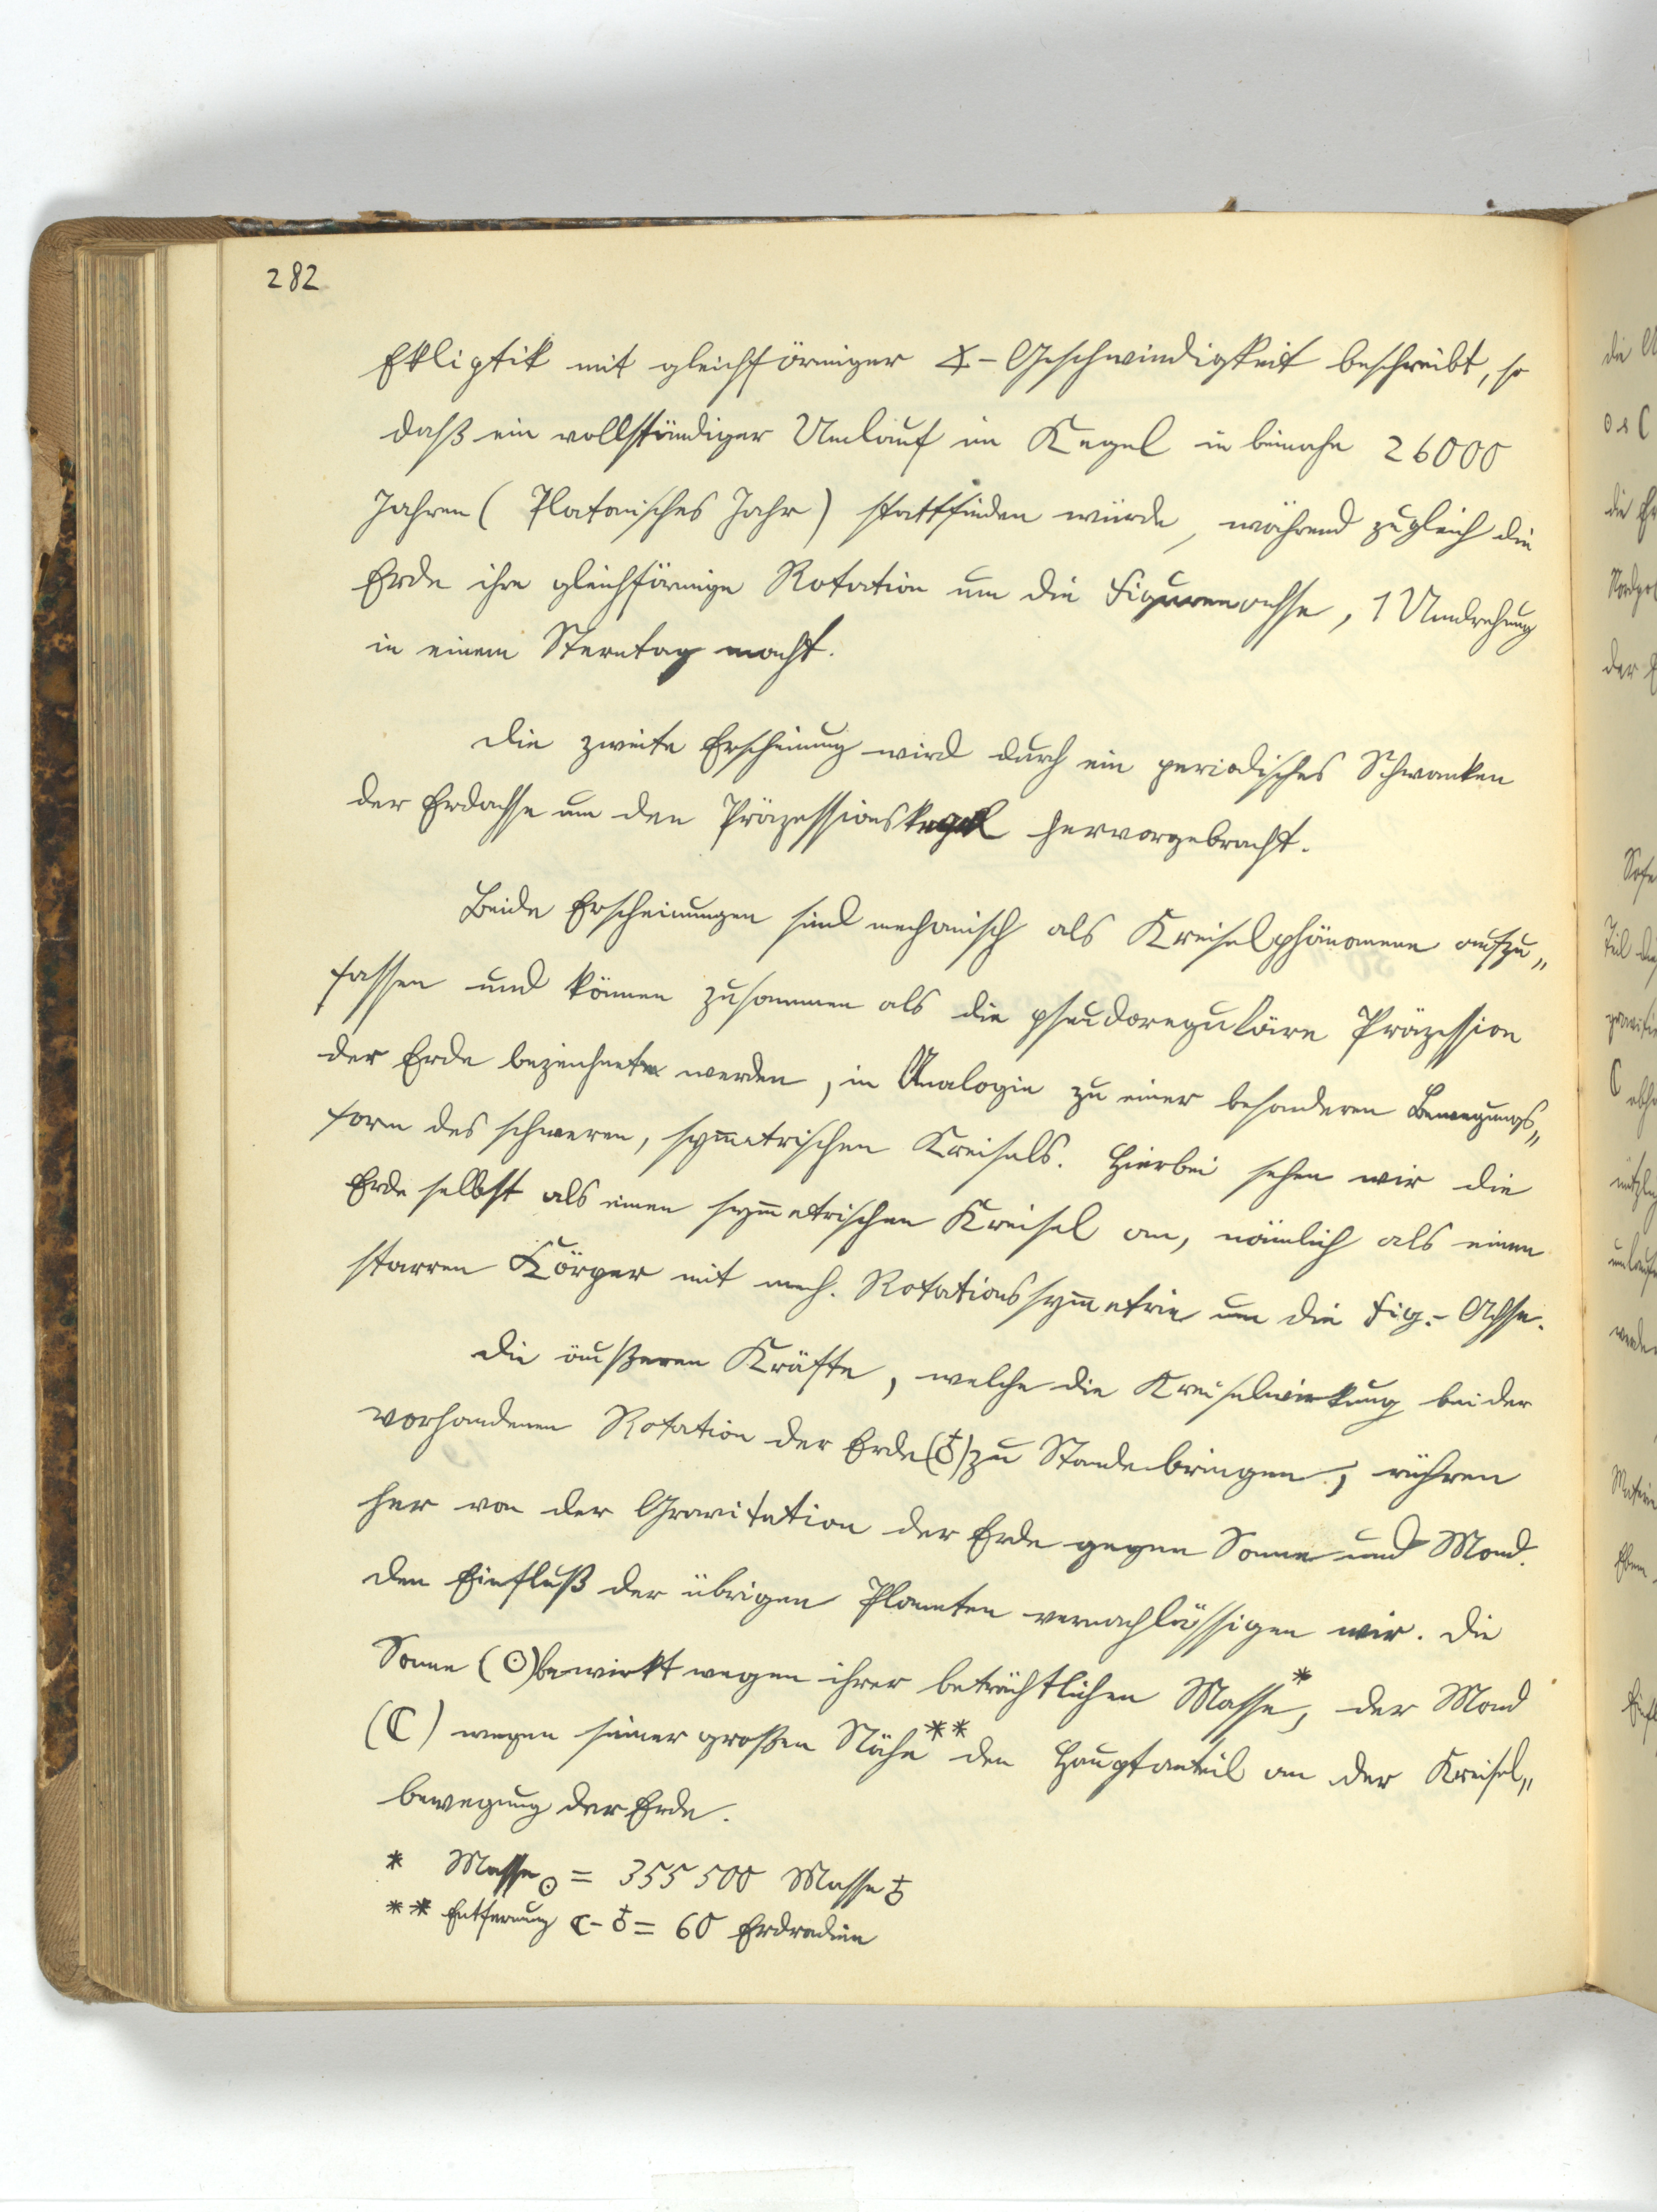 282
Ekliptik mit gleichförmiger ∢-Geschwindigkeit beschreibt, so
daß ein vollständiger Umlauf im Kegel in beinahe 26000
Jahren (Platonisches Jahr) stattfinden würde, während zugleich die
Erde ihre gleichförmige Rotation um die Figurenachse, 1 Umdrehung
in einem Sterntag macht.
Die zweite Erscheinung wird durch ein periodisches Schwanken
der Erdachse um den Präzessionskegel hervorgebracht.
Beide Erscheinungen sind mechanisch als Kreiselphänomene aufzu„
fassen und können zusammen als die pseudoreguläre Präzession
der Erde bezeichnet werden, in Analogie zu einer besonderen Bewegungs„
form des schweren, symmetrischen Kreisels. Hierbei sehen wir die
Erde selbst als einen symmetrischen Kreisel an, nämlich als einen
starren Körper mit mech. Rotationssymmetrie um die Fig.-Achse.
Die äußeren Kräfte, welche die Kreiselwirkung bei der
vorhandenen Rotation der Erde (♁) zu Stande bringen, rühren
her von der Gravitation der Erde gegen Sonne und Mond.
Den Einfluß der übrigen Planeten vernachlässigen wir. Die
Sonne (☉) bewirkt wegen ihrer beträchtlichen Masse*, der Mond
(☾) wegen seiner großen Nähe** den Hauptanteil an der Kreisel„
bewegung der Erde.
* Masse☉ = 355 500 Masse ♁
** Entfernung ☾-♁ = 60 Erdradien